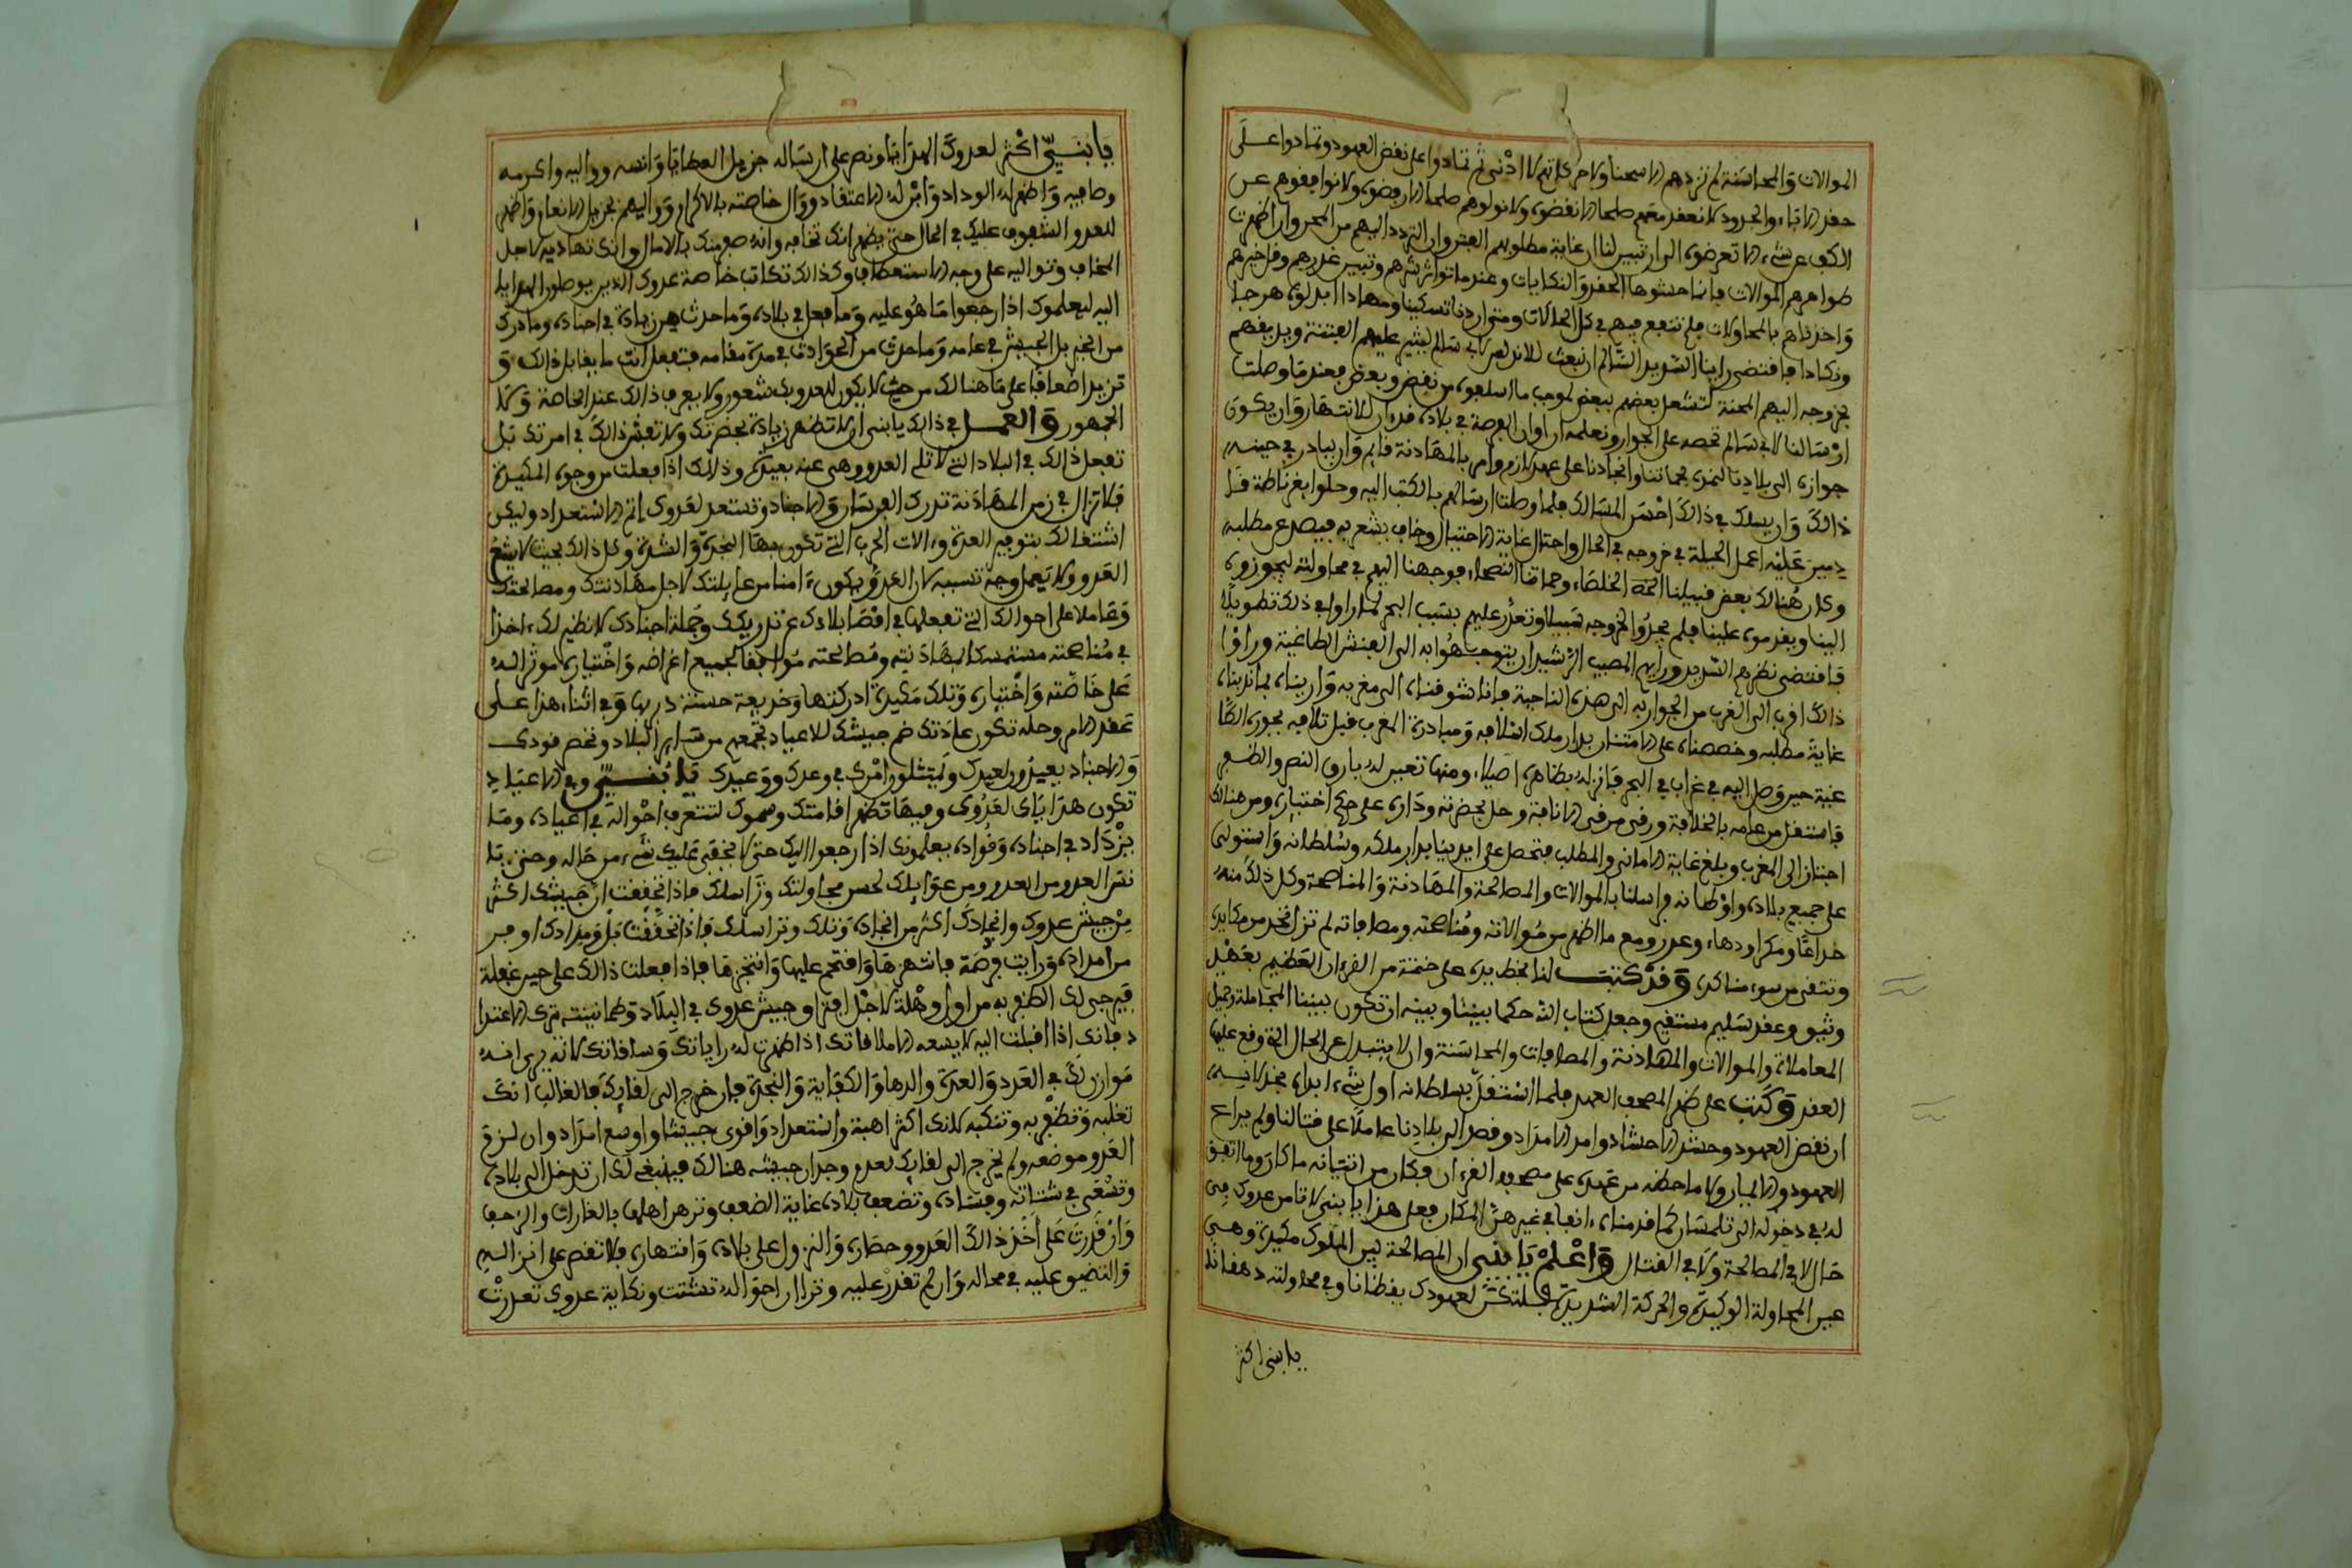 الموالات والمحاسنة لم نزدهم الا سحنا ولا حركاتهم الا اذنى ثم تمادوا على نقض العهود وتمادوا على
حفر الاباء والجرود لا نعقد معهم صلحا الا نقضوه ولا نولوهم صلحا الا رفضوه ولا نوافقوهم عن
الكف عن شيء الا تعرضوه الى ان تبين لنا ان غاية مطلوبهم الغدر وان التردد اليهم من العجز وان اظهرت
ظواهرهم الموالات فانما حشوها الحقد والنكايات وعندما تواتر شرهم وتبين غدرهم وقل خيرهم
واخذناهم بالمحاولات فلم تنفع فيهم في كل الحالات ومتى اردنا تسكينا ومهادا ابدلوه هرجا
ونكادا فاقتضى راينا السديد السالم ان نبعث للاندلس لابي سالم ليثير عليهم الفتنة ويديقهم
بخروجه اليهم المحنة لتشعل بعضهم ببعض لموجب ما اسلفوه من نقض وبغض فعندما وصلت
ارسالنا لابي سالم تحضه على الجواز وتعلمه ان اوان الفرصة في بلاده قد ان للانتهاز وان يكون
جوازه الى بلادنا لنمده بحمايتنا وانجادنا على عهد لازم وامر بالمهادنة قايم وان يبادر في حينه
ذالك وان يسلك في ذالك احسن المسالك فلما وصلت ارسالهم بالكتب اليه وحلوا بغرناطة
اعمل الحيلة في خروجه في الحال واحتال غاية الاحتيال وخاف يشعر به فيصد عن مطلبه
وكان هنالك بعض قبيلنا الخلصاء وحماتنا النصحاء فوجهنا اليهم في محاولته ليجوزوه
الينا ويقدموه علينا فلم يجدوا لخروجه سبيلا وتعذر عليهم بسبب البحر لما راوا في ذلك تطويلا
فاقتضى نظرهم السديد ورايهم المصيب الرشيد ان يتوجهوا به الى الفنش الطاغية وراوا
ذالك اقرب الى الغرب من الجواز به الى هذه الناحية فانا شوقناه الى مغربه واريناه
غاية مطلبه وخصصناه على الامتنان بدار ملك اسلافه ومبادرة المغرب قبل تلافه
حين وصل اليه في غراب في البحر فانزله بظاهر اصيلا ومنها تعبر له بارق النصر والظفر
فاستقل من عامه بالخلافة ورقى مرقى الانافة وحل بحضرته وداره على اختياره ومن هنالك
اجتاز الى المغرب وبلغ غاية الاماني والمطلب فتحصل على ايدينا بدار ملكه وسلطانه واستولى
على جميع بلاده واوطانه فراسلنا بالموالات والمصالحة والمهادنة والمناصحة وكل ذلك منه
خداعا ومكرا ودهاء وغدر ومع ما اظهر من موالاته ومناصحته ومصافاته لم نزل نحذر من مكايده
ونتقي من سوء مناكده وقد كتبت لنا بخط يده على ختمة من القرءان العظيم بعهد
وثيق وعقد سليم مستقيم وجعل كتاب الله حكما بيننا وبينه ان تكون بيننا المجاملة وجميل
المعاملات والموالات والمهادنة والمصافات والمحاسنة وان لا يتبدل عن الحال التي وقع عليها
العقد وكتب على ظهر المصحف العهد فلما استقل بسلطانه اول شيء ابداه
ان نقض العهود وحشد الاحشاد وامد الامداد وقصد الى بلادنا عاملا على قتالنا ولم يراع
العهود والايمان ولا ما خطه من عهده على مصحف القرءان فكان من اتيانه ما كان وما اتفق
له في دخوله الى تلمسان كما قدمناه ءانفا في غير هذا المكان فعلى هذا يا بني لا تامن عدوك في
حال لا في المصالحة ولا في القتال واعلم يا بني ان المصالحة بين الملوك مكيدة وهي
عين المحاولة الوكيدة والحركة الشديدة فلتكن لعهودك يقظانا وفي محاولته دهقانا
يا بني اكثر
يا بني اكثر لعدوك الهدايا ونص على ارساله جزيل العطايا وانسه وواليه واكرمه
وصافيه واظهر له الوداد وابد له الاعتقاد ووال خاصته بالاكرام وواليهم بجزيل الانعام واظهر
للعدو الشفوف عليك في الحال حتى يظهر انك تخافه وانه منك بالامال وانك تهاديه لاجل
المخاف وتواليه على وجه الاستعطاف وكذالك تكاتب خاصة عدوك الذين يوصلون الهدايا
اليه ليعلموك اذا رجعوا ما هو عليه وما فعل في بلاده وما حدث من زيادة في اجناده وما درك
من الخبر بل الجيش في عامه وما حدث من الحوادث في مدة مقامه فتفعل انت ما يقابل ذالك و
تزيد اضعافا على ما هنالك من حيث لا يكون لعدوك شعور ولا يعرف ذالك عند الخاصة ولا
الجمهور والعمل في ذالك يا بني ان لا تظهر زيادة بحضرتك ولا تفش ذالك في امرتك بل
تفعل ذالك في البلاد التي لا تلي العدو وهي عنه بعيدة وذالك اذا فعلت من وجوه المكيدة
فلا تزال في زمن المهادنة تدرك الفرسان والاجناد وتستعد لعدوك اتم الاستعداد وليكن
اشتغالك بتوفير العدة وءالات الحرب التي تكون بها النجدة والشدة وكل ذالك بحيث لا يشعر
العدو ولا يعلم وجه تسببه لان العدو يكون ءامنا من غايلتك لاجل مهادنتك ومصالحتك
وغافلا على احوالك التي تفعلها في اقصا بلادك من تدريكك وجملة اجنادك لا نظير لك ءاخذا
في مناصحته مستمسكا بمهادنته ومصالحته موافقا لجميع اغراضه واختياره موثرا له
على خاصته واختياره وتلك مكيدة ادركتها وخديعة حسنة دبرتها وفي اثناء هذا على
عقد الامر وحله تكون عادتك ضم جيشك للاعياد تجمعهم من ساير البلاد وتحضر قودك
والاجناد بعيد وبعيدك ويمتثلون امرك في وعدك ووعيدك يا بني وفي الاعياد
تكون هداياك لعدوك وفيها تظهر اقامتك وسموك لتتعرف احواله في اعياده وما
يزداد في اجناده وقواده يعلمونك اذا رجعوا اليك حتى لا يخفى عليك شيء من حاله وحتى لا
العدو من الغدر ومن غوايلك لحسن محاولتك وتراسلك فاذا تحققت ان جيشك اكثر
من جيش عدوك وانجادك اكثر من انجاده وتراسلك فاذا تحققت بل ومدادك اوفر
من امداده ورايت فرصة فانتهزها وافتحم عليها وانتجزها فاذا فعلت ذالك على حين غفلة
فيرجى لك الظفر به من اول وهلة لاجل افتراق جيش عدوك في البلاد وطمانينته بترك الاعتدا
د فانك اذا اقبلت اليه لا يسعه الا ملاقاتك اذا ظهرت له راياتك وساقاتك لانه يرى انه
موازن لك في العدد والعدة والدهاء والكفاية والنجدة فان خرج الى لقايك فالغالب انك
تغلبه وتظفر به وتنكبه لانك اكثر اهبة واستعداد واقوى جيشا واوسع امداد وان لزم
العدو موضعه ولم يخرج الى لقايك لعدم وجدان جيشه هنالك فينبغي لك ان تدخل الى بلاده
وتسعى في شتاته وفساده وتضعف بلاده غاية الضعف وتزهر اهلها بالغارات والزحف
وان قدرت على اخذ ذالك العدو وحصاره والنزول على بلاده وانتهازه فلا تقصر على انزاله
والتضييق عليه في محاله وان لم تقدر عليه وترى ان احواله تشتت ونكاية عدوك تعذرت